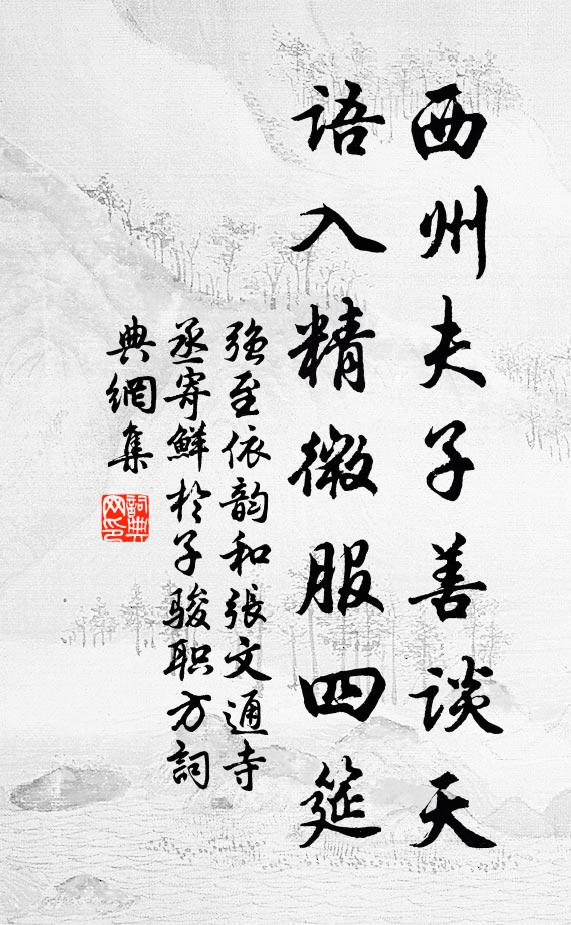 西州夫子善谈天
语入精微服四筵
强至依韵和張文通寺
丞寄鮮於子駿职方詞
典網集
詞典网印